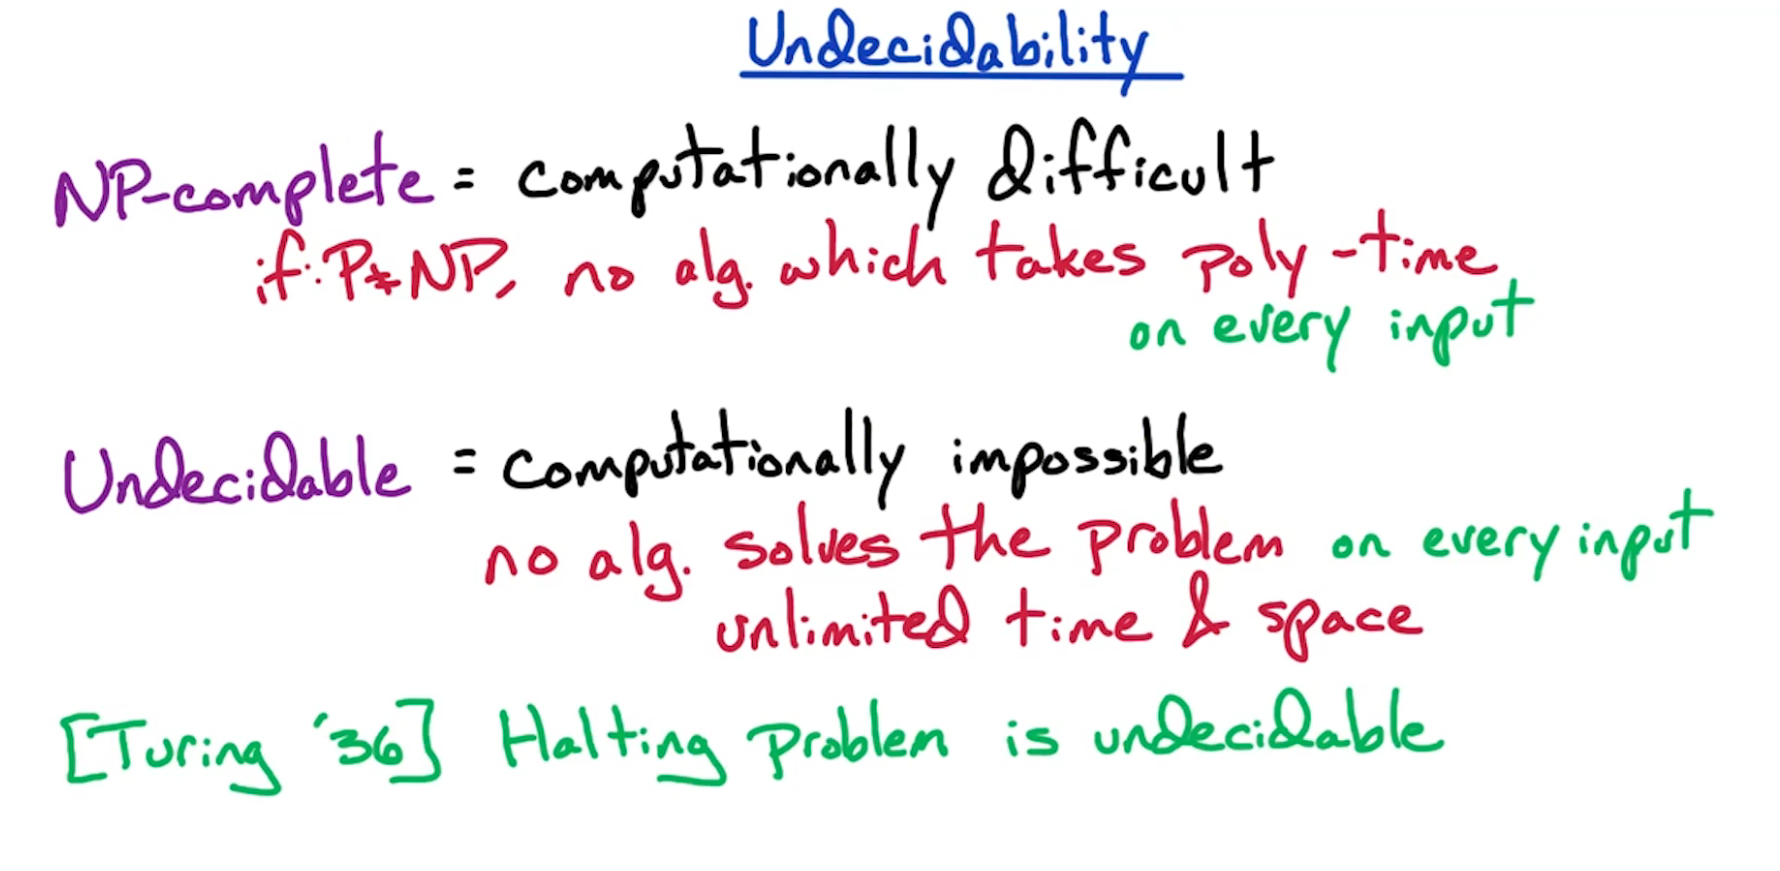 Undecidability
NP-complete = computationally difficult
if: P≠NP, no alg. which takes poly-time
on every input
Undecidable = computationally impossible
no alg. solves the problem on every input
unlimited time & space
[Turing '36] Halting Problem is undecidable